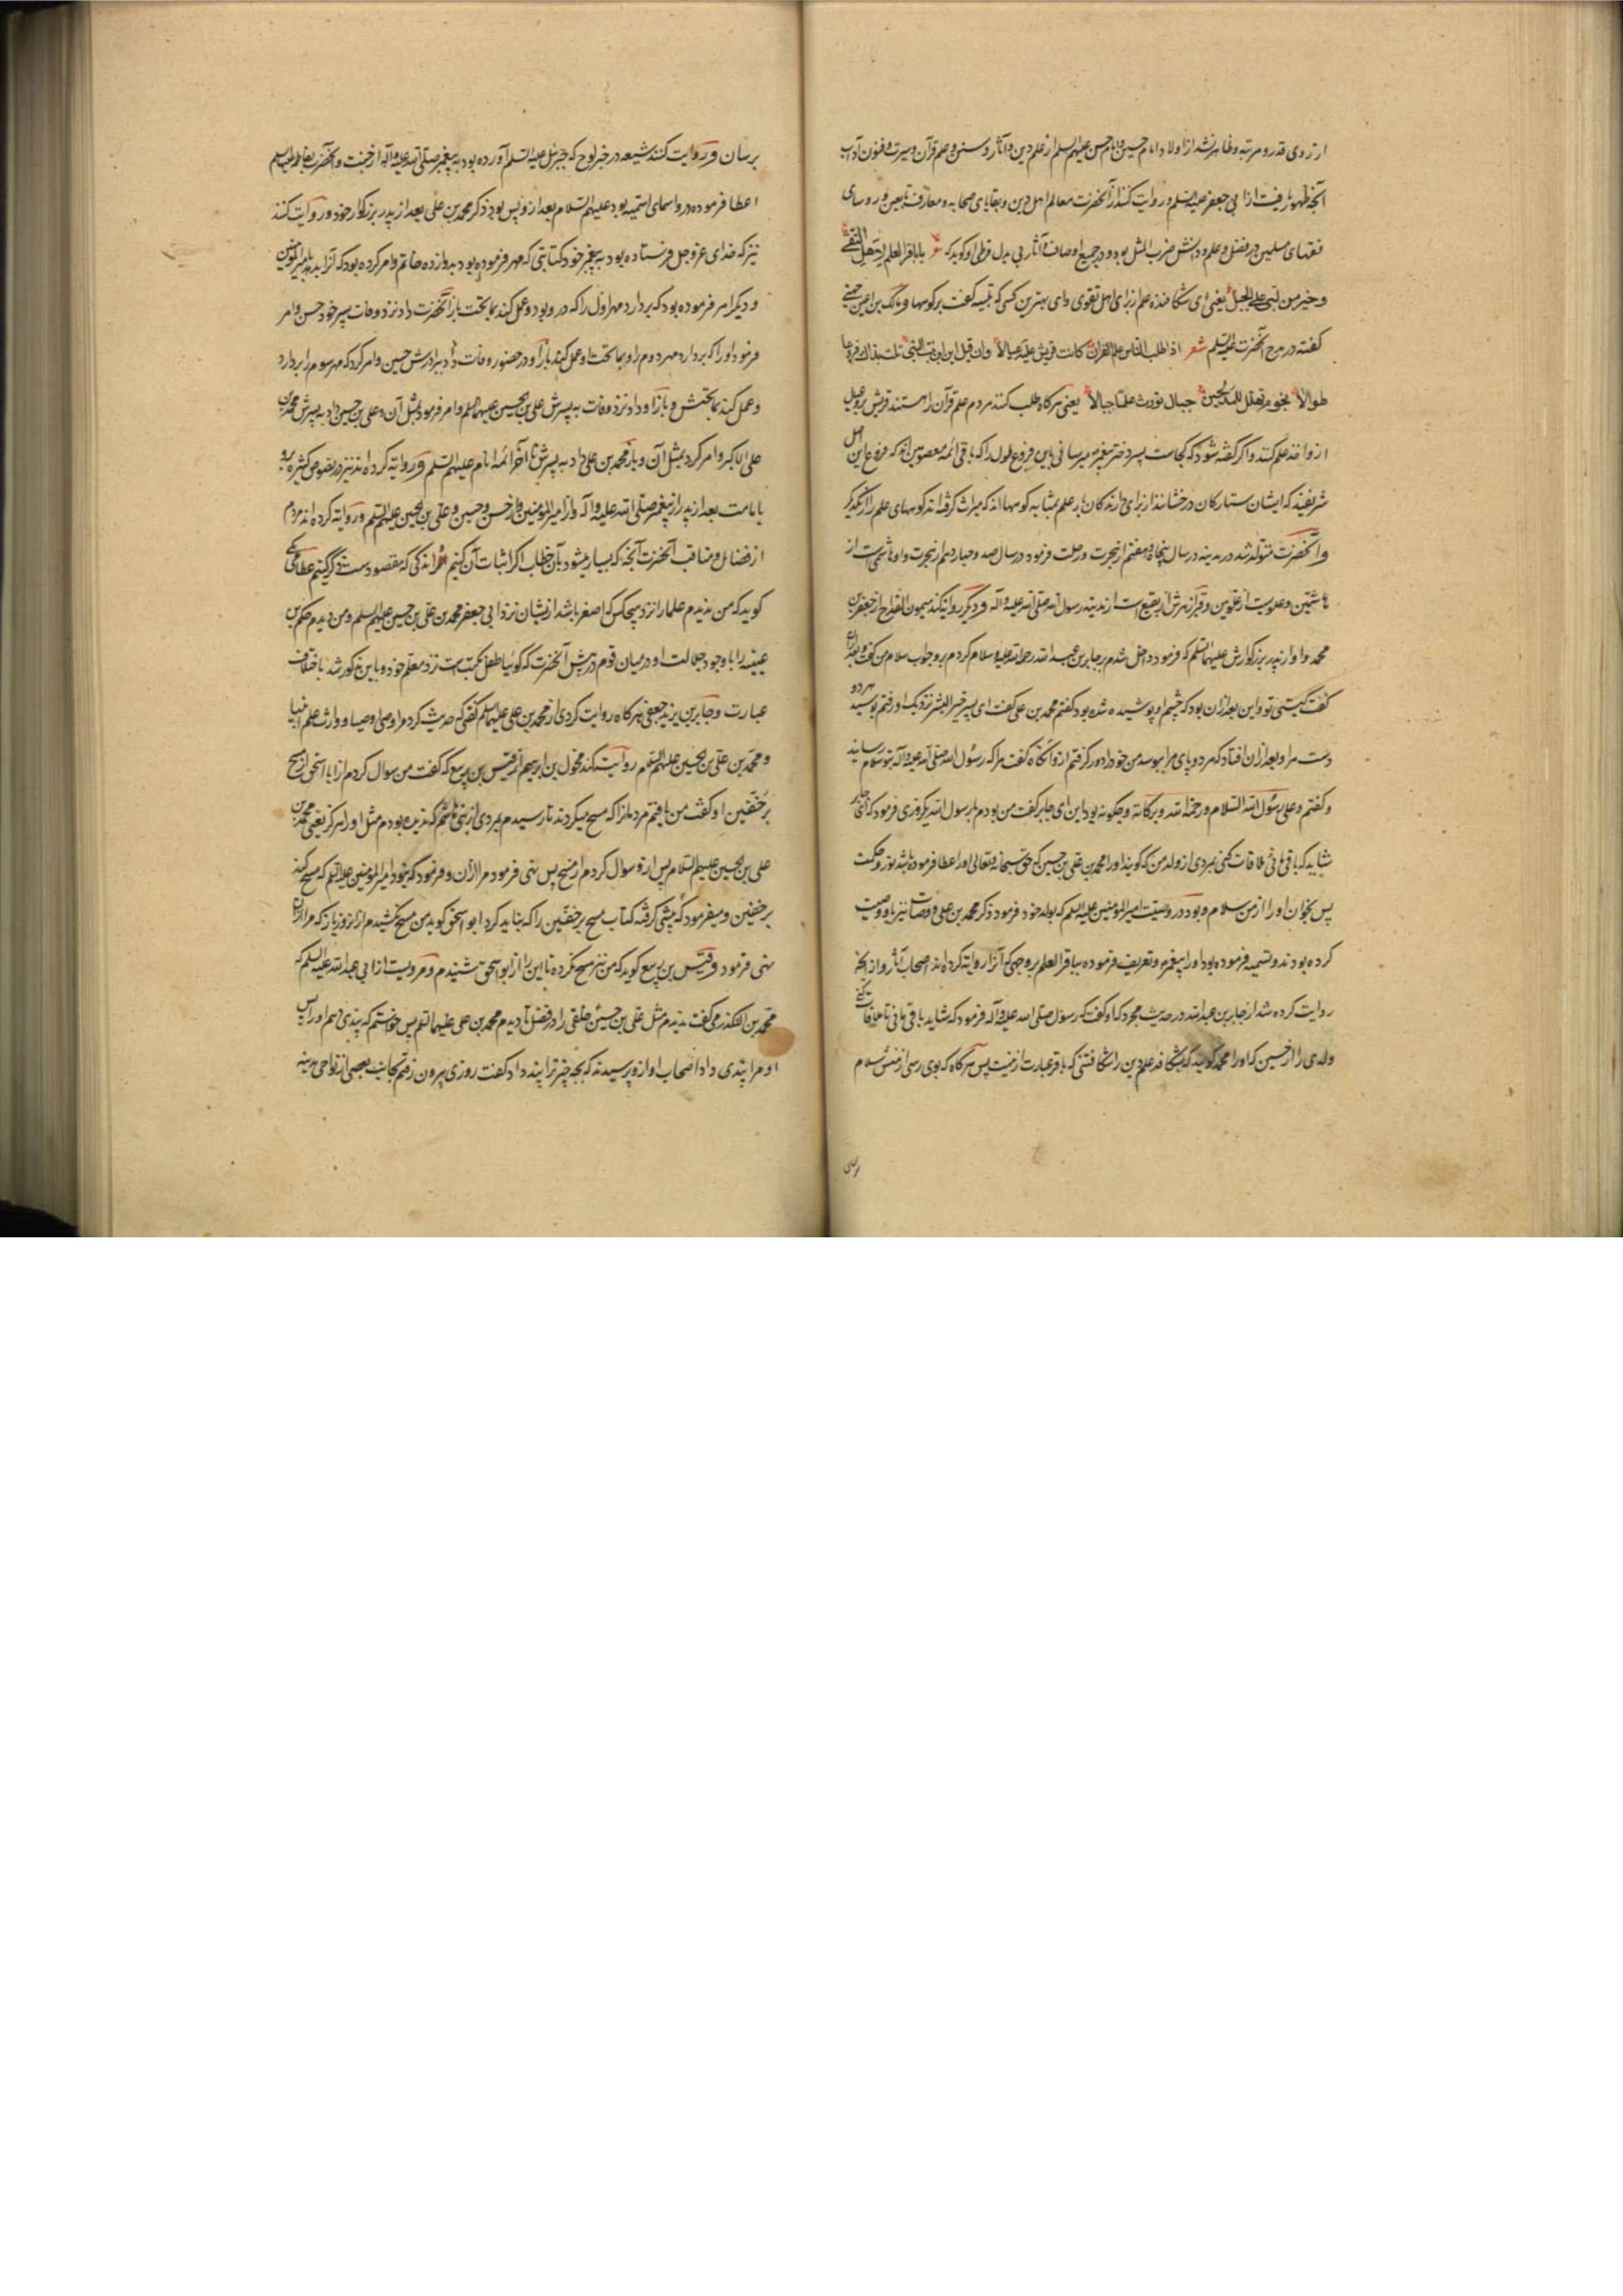 از روی قدر و مرتبه و ظاهر نشد از اولاد امام حسین و امام حسن علیهم السلم از علم دین و آثار و سنن و علم قرآن و سیرت و فنون آداب
آنچه ظهور یافت از ابی جعفر علیه السلم و روایت کنند از آنحضرت معالم اهل دین و بقایای صحابه و معارف تابعین و روسای
فقهای مسلمین در فضل و علم و دانش ضرب المثل بود و در جمیع اوصاف و آثار بی بدل قرطی او کوید که شعر یا باقر العلم لاهل التقی
و خیر من لبی علی الجبل یعنی ای شکافنده علم از برای اهل تقوی و ای بهترین کسی که تلبیه کفت بر کوهها و مالک بن اعین جهنی
کفته در مدح آنحضرت علیه السلم شعر اذا طلب الناس علم القران کانت قریش علیه عیالا وان قیل این ابن بنت النبی نلت بذاک فروعا
طوالا نجوم تهلل للمدلجین جبال تورث علما جبالا یعنی هرکاه طلب کنند مردم علم قرآن را هستند قریش برو عیل
از و اخذ علم کنند و اکر کفته شود که کجاست پسر دختر پیغمبر میرسانی باین فروع طول را که باقی ائمه معصومین اند که فروع این اصل
شریفند که ایشان ستارکان درخشانند از برای روندکان بار علم بمثابه کوهها اند که میراث کرفته اند کوههای علم را از یکدیگر
و آنحضرت متولد شد در مدینه در سال پنجاه و هفتم از هجرت و رحلت فرمود در سال صد و چهاردهم از هجرت و او هاشمی است از
هاشمین و علویت از علویین و قبر از هرش در بقیع است از مدینه رسول الله صلی الله علیه و آله و دیگر روایت کند میمون القداح از جعفر بن
محمد و او از پدر بزرکوارش علیهما السلم که فرمود داخل شدم بر جابر بن عبد الله رحمة الله علیه و سلام کردم برو جواب سلام من کفت و بعد از ان
کفت کیستی تو و این بعد از ان بود که چشم او پوشیده شده بود کفتم محمد بن علی کفت ای پسر خیر البشر نزدیک او رفتم بوسید هر دو
دست مرا و بعد از ان افتاد که هر دو پای مرا ببوسد من خود را دور کرفتم از و آنگاه کفت مرا که رسول الله صلی الله علیه و آله بتو سلام رسانید
و کفتم و علی رسول الله السلام و رحمة الله و برکاته و چکونه بود این ای جابر کفت من بودم با رسول الله یکروزی فرمود که ای جابر
شاید که باقی مانی تا ملاقات کنی بمردی از ولد من که کویند او را محمد بن علی بن حسین که حق سبحانه و تعالی او را عطا فرموده باشد نور و حکمت
پس بخوان او را از من سلام و بود در وصیت امیر المومنین علیه السلم که بولد خود فرمود ذکر محمد بن علی و وصایت نیز باو وصیت
کرده بودند و تسمیه فرموده بود او را پیغمبر و تعریف فرموده بباقر العلم بر وجهی که آنرا روایة کرده اند اصحاب آثار و از آنچه
روایت کرده شد از جابر بن عبدالله در حدیث مجرد که او کفت که رسول صلی الله علیه و آله فرمود که شاید باقی مانی تا ملاقات کنی
ولدی را از حسین که او را محمد کویند که بشکافد علم دین را شکافتنی که باقر عبارت ازینست پس هرکاه که بوی رسی از منش سلام
برسان
برسان و روایت کنند شیعه در خبر لوح که جبرئیل علیه السلم آورده بود به پیغمبر صلی الله علیه و آله از جنت و آنحضرت بفاطمه علیها السلم
اعطا فرموده در و اسمای ائمه بود علیهم السلام بعد از و پس بود ذکر محمد بن علی بعد از پدر بزرکوار خود و روایت کنند
نیز که خدای عز و جل فرستاده بود به پیغمبر خود کتابتی که مهر فرموده بود بدوازده خاتم و امر کرده بود که آنرا بدهد بامیر المومنین
و دیگر امر فرموده بود که بردارد مهر اول را که در و بود و عمل کند بما تحت باز آنحضرت داد نزد وفات پسر خود حسن و امر
فرمود او را که بردارد مهر دوم را و بما تحت او عمل کند باز او در حضور وفات داد ببرادرش حسین و امر کرد که مهر سوم را بردارد
و عمل کند بما تحتش و باز او داد نزد وفات به پسرش علی بن الحسین علیهما السلم و امر فرمود بمثل آن و علی بن حسین داد به پسرش محمد بن
علی الاکبر و امر کرد بمثل آن و باز محمد بن علی داد به پسرش تا آخر ائمه انام علیهم السلم و روایة کرده اند نیز در نصوص کثیره برو
بامامت بعد از پدر از پیغمبر صلی الله علیه و آله و از امیر المومنین و از حسن و حسین و علی بن الحسین علیهم السلم و روایة کرده اند مردم
از فضایل و مناقب آنحضرت آنچه که بسیار میشود بآن خطاب اکر اثبات آن کنیم اندکی که مقصود ست ذکر کنیم عطا مکی
کوید که من ندیدم علما را نزد هیچکس که اصغر باشد از یشان نزد ابی جعفر محمد بن علی بن حسین علیهم السلم و من دیدم حکم بن
عیینه را با وجود جلالت او در میان قوم در پیش آنحضرت که کوئیا طفل مکتب است نزد معلم خود و باین مذکور شد باختلاف
عبارت و جابر بن یزید جعفی هرکاه روایت کردی از محمد بن علی علیهما السلم کفتی که حدیث کرد مرا وصی اوصیا و وارث علم انبیا
و محمد بن علی بن الحسین علیهم السلم روایت کند مخول بن ابرهیم از قیس بن ربیع که کفت من سوال کردم از ابا اسحق از مسح
بر خفین او کفت من یافتم مردمانرا که مسح میکردند تا رسیدم بمردی از بنی هاشم که ندیده بودم مثل او را هرکز یعنی محمد بن
علی بن الحسین علیهم السلام پس از و سوال کردم از مسح پس نهی فرمود مرا از ان و فرمود که نبود امیر المومنین علیه السلم که مسح کند
بر خفین و میفرمود که پیشی کرفته کتاب مسح بر خفین را که نباید کرد ابو اسحق کوید من مسح نکشیدم از انروز باز که مرا از ان
نهی فرمود و قیس بن ربیع کوید که من نیز مسح نکرده تا این را از ابو اسحق شنیدم و مرویست از ابی عبدالله علیه السلم که
محمد بن المنکدر می کفت ندیدم مثل علی بن حسین خلقی را در فضل تا دیدم محمد بن علی علیهما السلم پس خواستم که پندی دهم او را پس
او مرا پندی داد اصحاب او ازو پرسیدند که بچه چیز ترا پند داد کفت روزی بیرون رفتم بجانب بعضی از نواحی مدینه